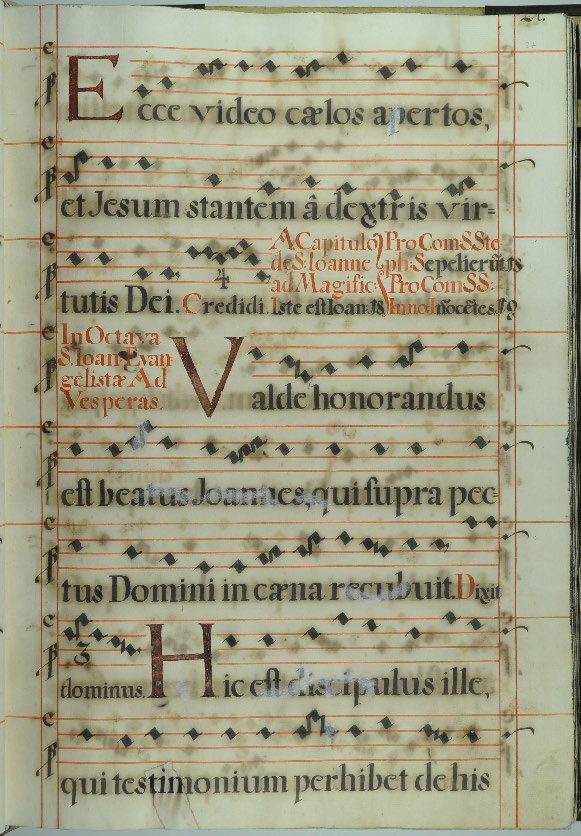 Ecce video cælos apertos,
et Jesum stantem â dextris vir=
A Capitulo Pro Com: SSte
de S: Ioanne phi: Sepelierūt 18
ad Magnific: Pro Com SS:
tutis Dei. Credidi. 4 Iste est Ioan: 18 Innoc̄etes. 19
In Octava
S. Ioan. Evan
gelistæ Ad
Vesperas.
Valde honorandus
est beatus Joannes, qui supra pec=
tus Domini in cæna recubuit. Dixit
dominus. 3 Hic est discipulus ille,
qui testimonium perhibet de his